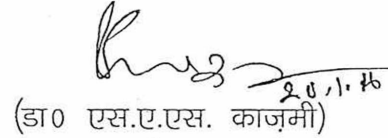 20.1.16
(डा0 एस.ए.एस. काज़मी)